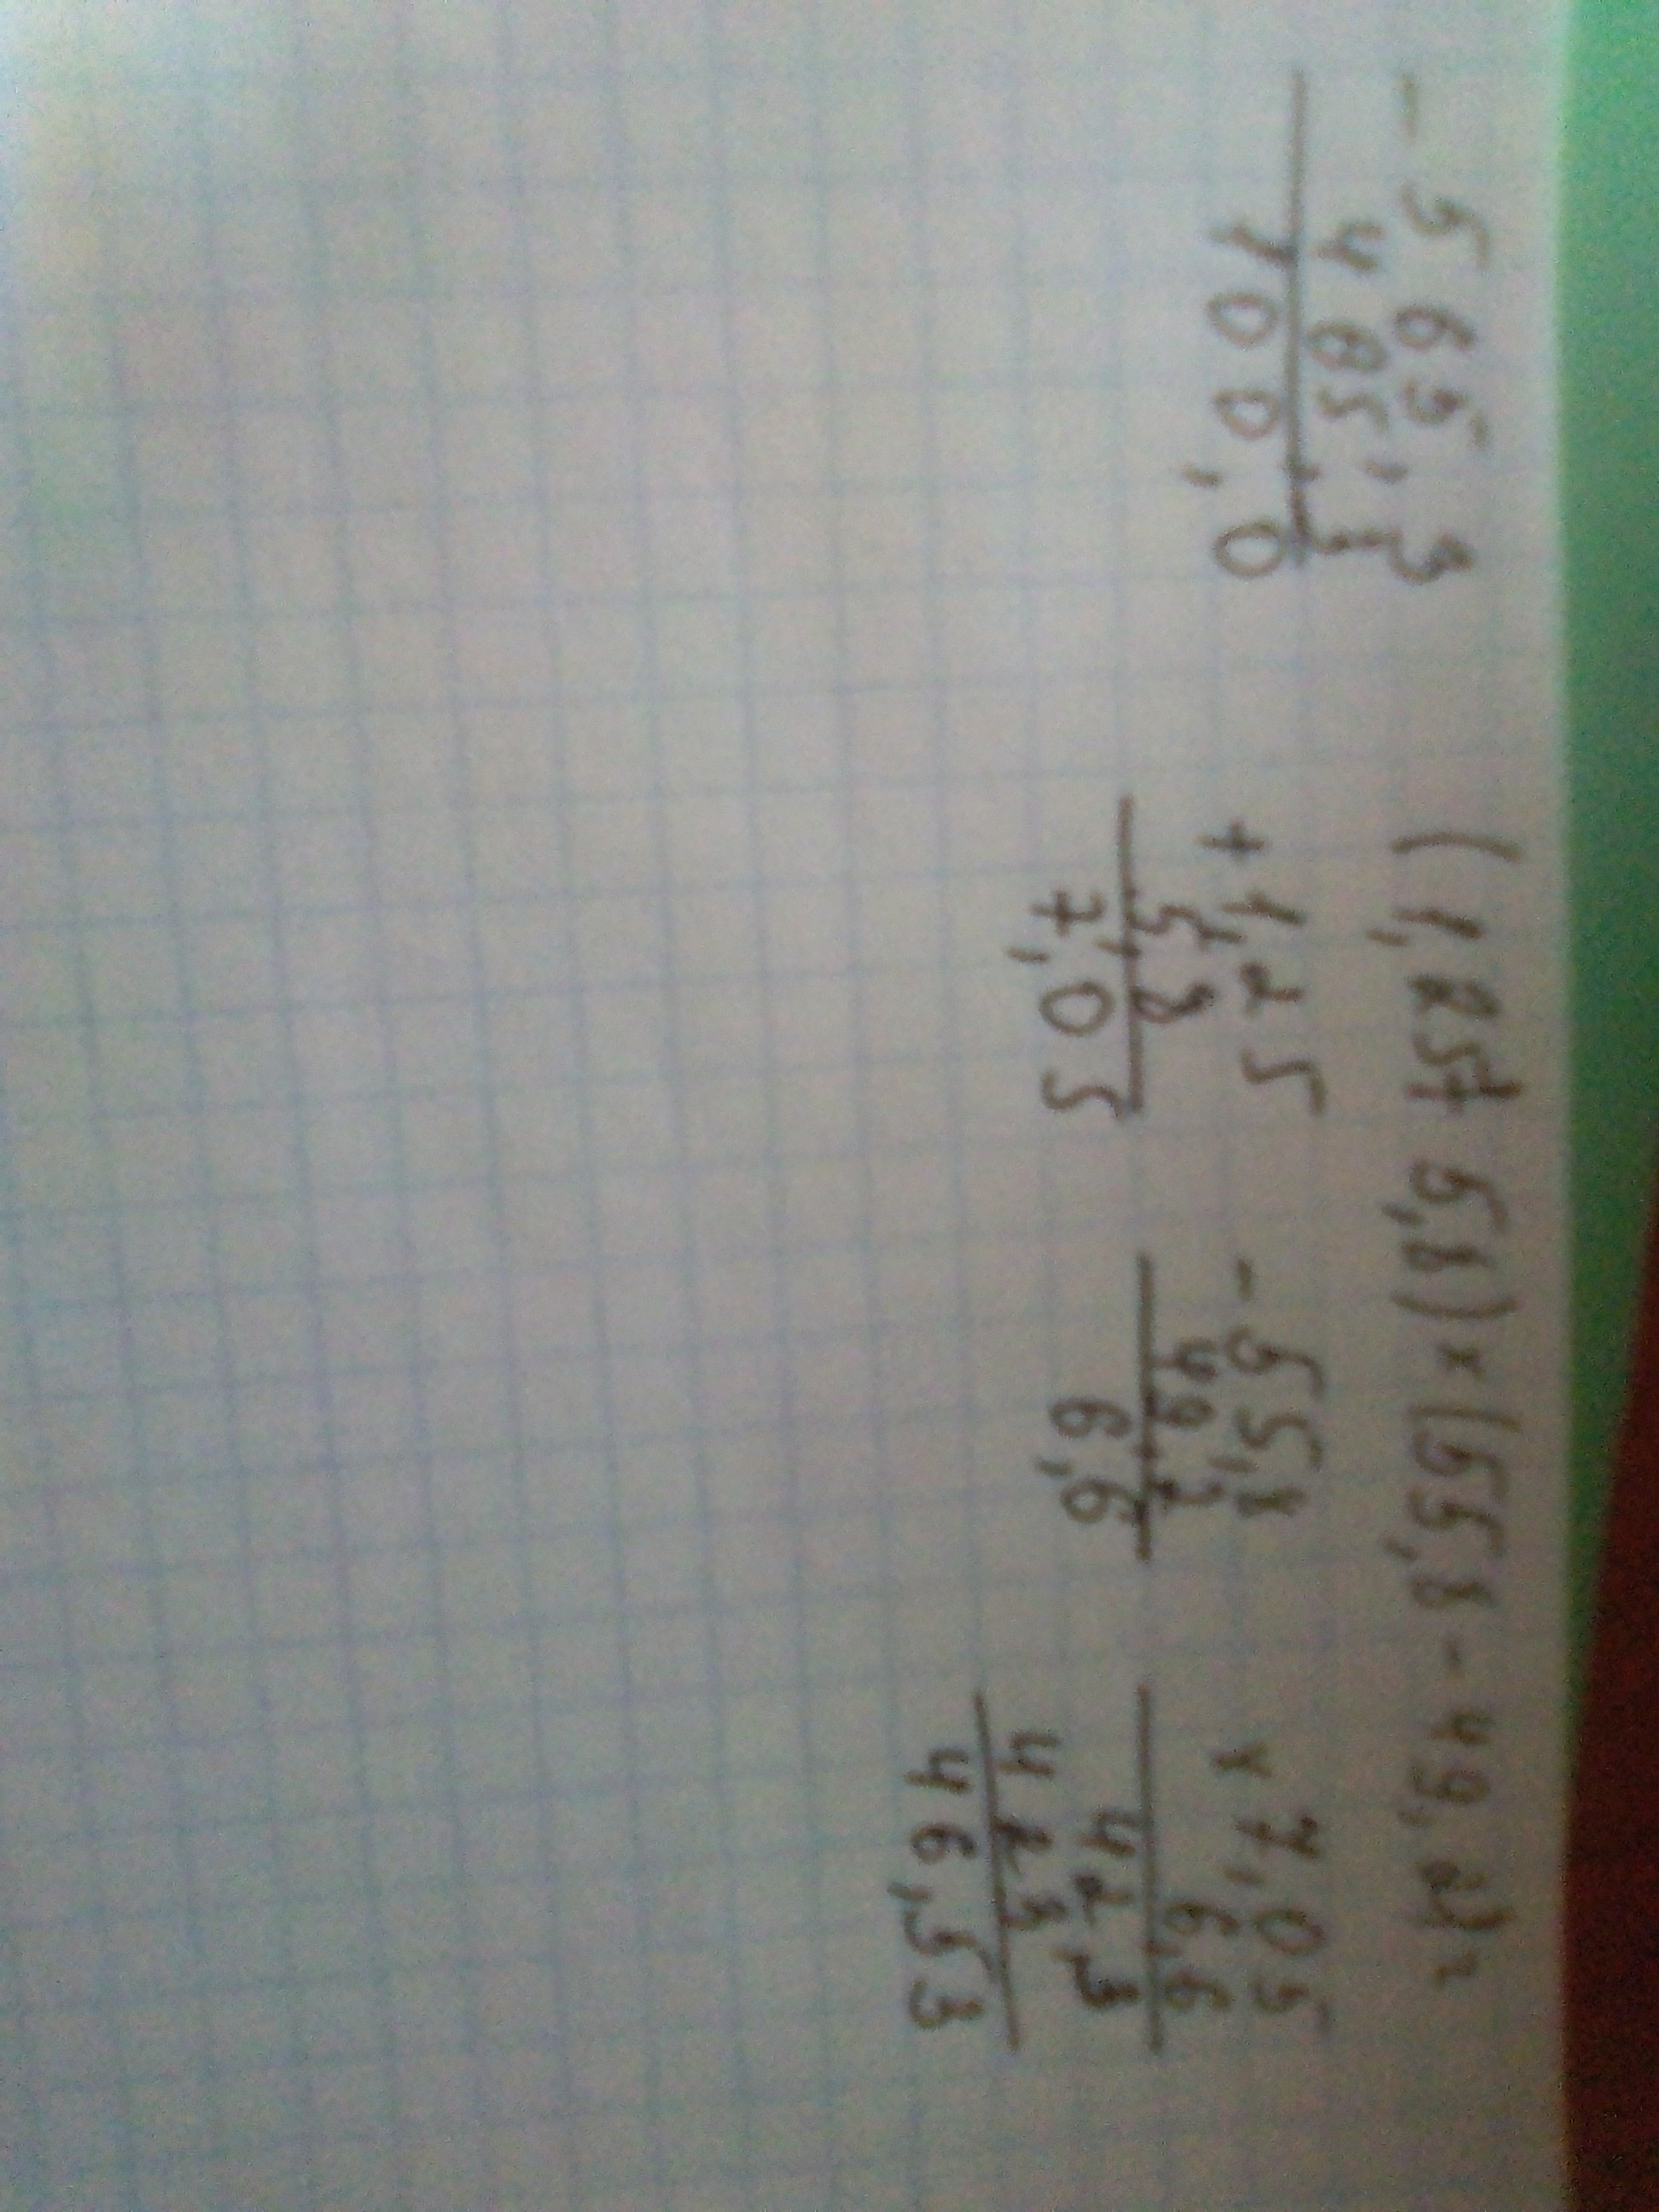 - 565,3
465,3
100,0
(1,25+5,8)x(55,8-49,2)=
+ 1,25
5,8
7,05
- 55,8
49,2
6,6
x 7,05
6,6
423
423
46,53